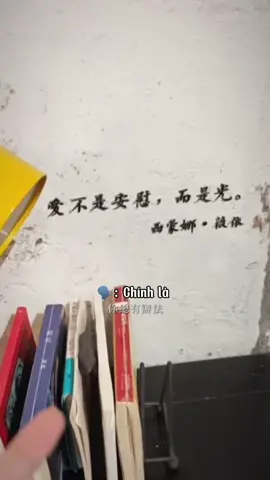 愛不是安慰，而是光。
西蒙娜·薇依
🗣️: Chính là
你總有辦法